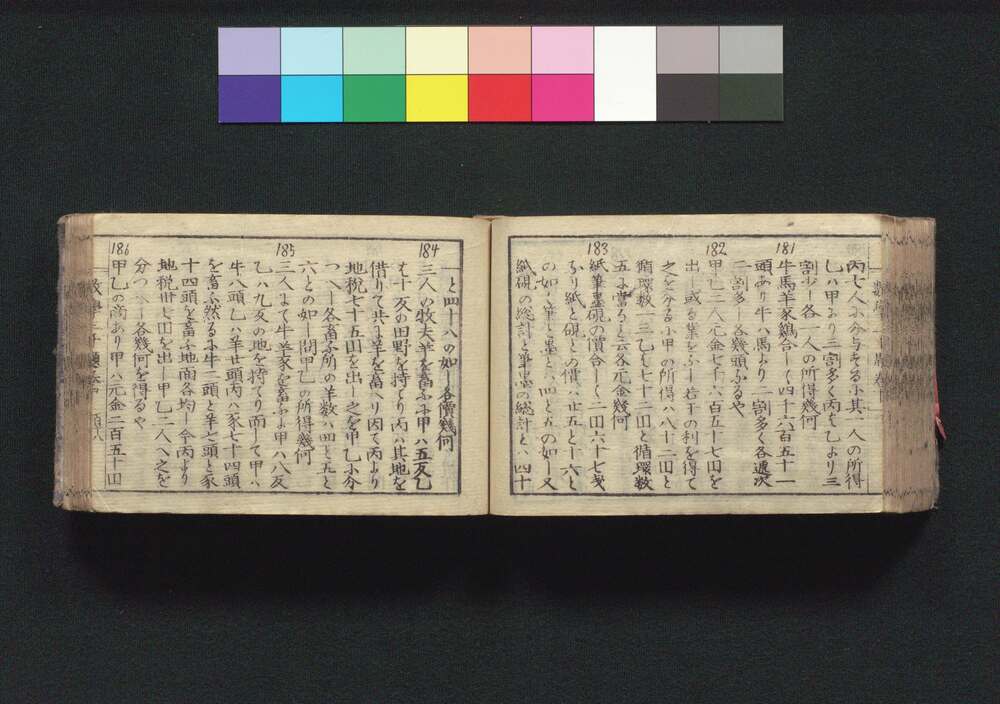 丙七人小分与する小其一人の所得
乙ハ甲より二割多く丙も乙より三
割少し各一人の所得幾何
181
牛馬羊豕鷄合して四十六百五十一
頭あり牛ハ馬より一割多く各逓次
二割多し各幾頭なるや
182
甲乙二人元金七千八百五十七円を
出し或る業をふし若干の利を得て
之を分る小甲の所得ハ八十二円と
循環数一三乙も七十二円と循環数
五に當ると云各元金幾何
183
紙筆墨硯の價合して二円六十七戔
あり紙と硯との價ハ廿五と十六と
の如し筆と墨とハ四と五の如し又
紙硯の総計と筆墨の総計とハ四十
と四十八の如し各價幾何
184
三人の牧夫羊を畜ふに甲ハ五反乙
も十反の田野を持てり丙ハ其地を
借りて共に羊を畜へり因て丙より
地税七十五円を出し之を甲乙小分
つへし各畜ふ所の羊数ハ四と五と
六との如し問甲乙の所得幾何
185
三人にて牛羊豕を畜ふに甲ハ八反
乙ハ九反の地を持てり而して甲ハ
牛八頭乙ハ羊廿頭丙ハ豕七十四頭
を畜ふ然るに牛二頭と羊七頭と豕
十四頭を畜ふ地面各均し今丙より
地税卅七円を出し甲乙二人へ之を
分つへし各幾何を得るや
186
甲乙の商あり甲ハ元金二百五十円